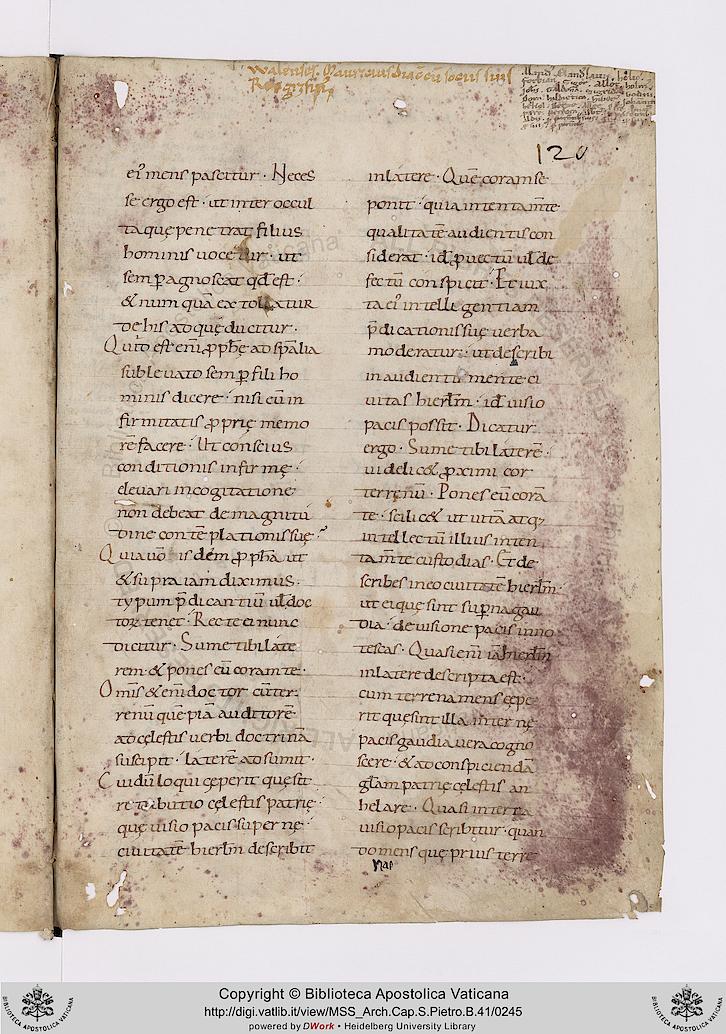 120
ei' mens pascitur · Neces
se ergo est · ut inter occul
ta quę penetrat filius
hominis uocetur · ut
semp agnoscat qđ est ·
& num quā extollatur
de his ad quę ducitur ·
Quid est eni ꝓ pphę ad spalia
subleuato semp fili ho
minis dicere · nisi eū in
firmitatis ꝓprię memo
rē facere · Ut conscius
conditionis infirmę ·
eleuari in cogitatione
non debeat de magnitu
dine contēplationis suę ·
Quia uo isdem ꝓpha ut
& supra iam diximus ·
typum pdicantiū ul doc
torꝝ tenet · Recte ei nunc
dicitur · Sume tibi late
rem · & pones eū coram te ·
Omis & eni doctor cū ter
renū quēpiā auditorē
ad cęlestis uerbi doctrinā
suscipit · laterē adsumit ·
Cui dū loqui cęperit quę sit
retributio cęlestis patrię ·
quę uisio pacis supernę ·
ciuitatē hierlm describit
in latere · Quē coram se
ponit · quia intentamte
qualitatē audientis con
siderat · id ꝓuectū ul de
fectū conspicit · Et iux
ta ei' intellegentiam
pdicationis suę uerba
moderatur · ut describi
in audientis mente ci
uitas hierlm · id uisio
pacis possit · Dicatur
ergo · Sume tibi laterē ·
uidelic& ꝓximi cor
terrenū · Pones eū corā
te · scilic& ut uitā atqꝫ
intellectū illius inten
tamte custodias · Et de
scribes in eo ciuitatē hierlm ·
ut ei quę sint superna gau
dia · de uisione pacis inno
tescas · Quasi eni iā hierlm
in latere descripta est ·
cum terrena mens cępe
rit quę sint illa internę
pacis gaudia uera cogno
scere · & ad conspiciendā
glam patrię cęlestis an
helare · Quasi in terra
uisio pacis scribitur · quan
do mens quę prius terre
nas
Copyright © Biblioteca Apostolica Vaticana
http://digi.vatlib.it/view/MSS_Arch.Cap.S.Pietro.B.41/0245
powered by DWork • Heidelberg University Library